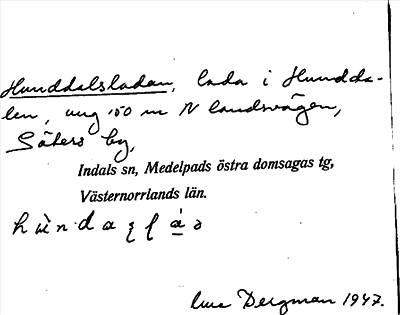 Hunddalsladan, lada i Hundda-
len, ung 150 m N landsvägen,
Säters by,
Indals sn, Medelpads östra domsagas tg,
Västernorrlands län.
Bergman 1947.